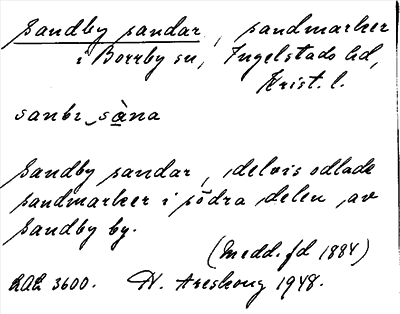 Sandby sandar, sandmarker
i Borrby sn, Ingelstads hd,
Krist. l.
sanbɪ_sàna
Sandby sandar, delvis odlade
sandmarker i södra delen av
Sandby by.
(Medd. fd 1884)
RAÄ 3600. N. Areskoug 1948.